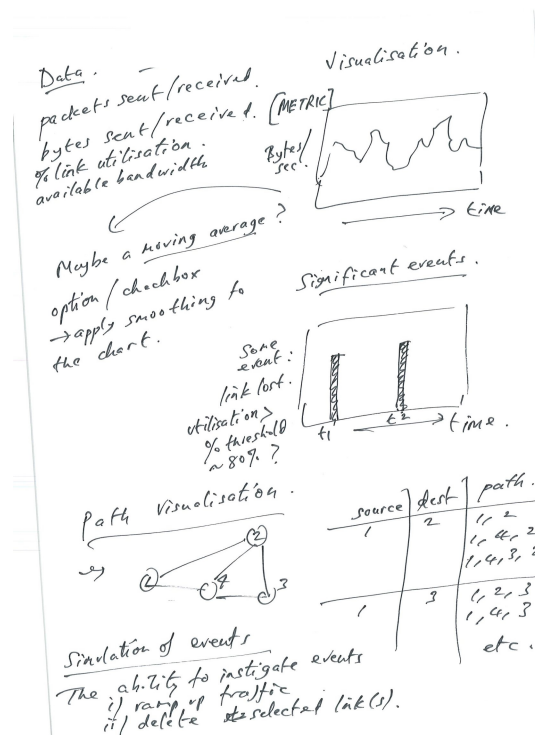 Data. -
packets sent/received.
bytes sent/received.
% link utilisation.
available bandwidth
Visualisation.
[METRIC]
Bytes/
sec.
time
Maybe a moving average?
option/checkbox
→ apply smoothing to
the chart.
Significant events.
Some
event:
link lost.
utilisation >
% threshold
~ 80% ?
t1
t2
time.
Path Visualisation.
eg
2
4
3
source dest path.
1 2 1, 2
1, 4, 2
1, 4, 3, 2
1 3 1, 2, 3
1, 4, 3
etc.
Simulation of events
The ability to instigate events
i) ramp up traffic
ii) delete selected link(s).